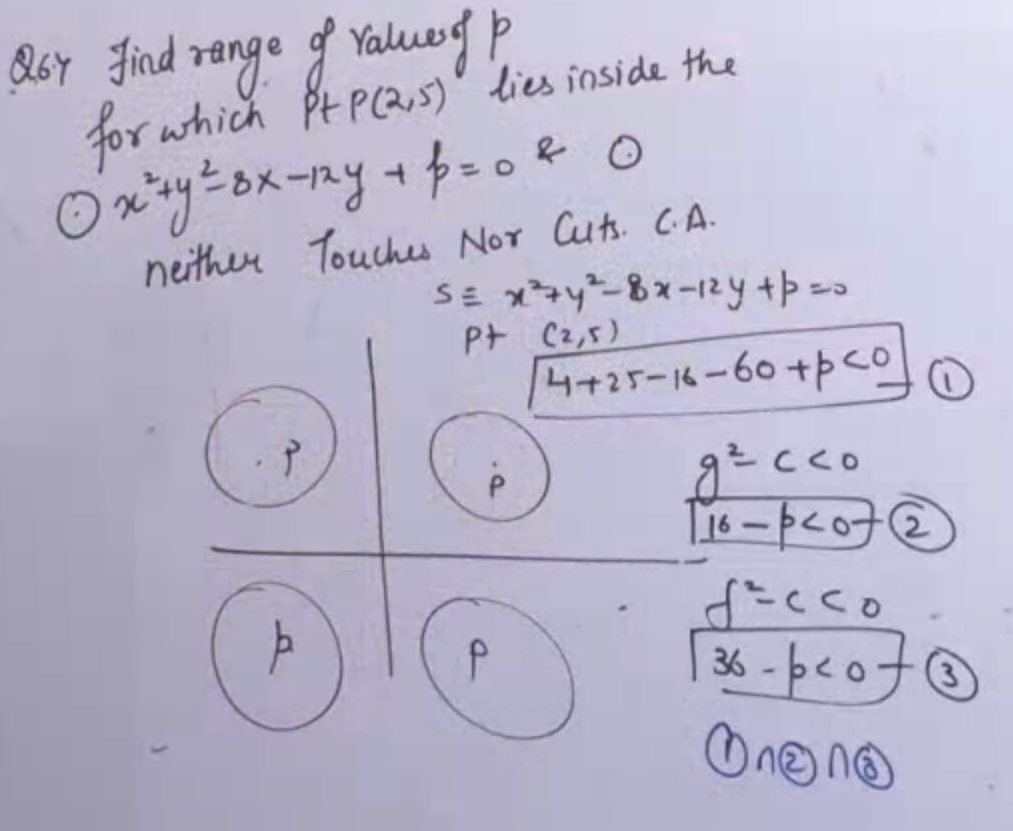 Q64 Find range of Values of p
for which Pt P(2,5) lies inside the
⊙ x²+y²-8x-12y + p=0 & ⊙
neither Touches Nor Cuts. C.A.
S ≡ x²+y²-8x-12y+p=0
Pt (2,5)
4+25-16-60+p<0 ①
.p
p
g²-c<0
16-p<0 ②
p
p
f²-c<0
36-p<0 ③
①∩②∩③